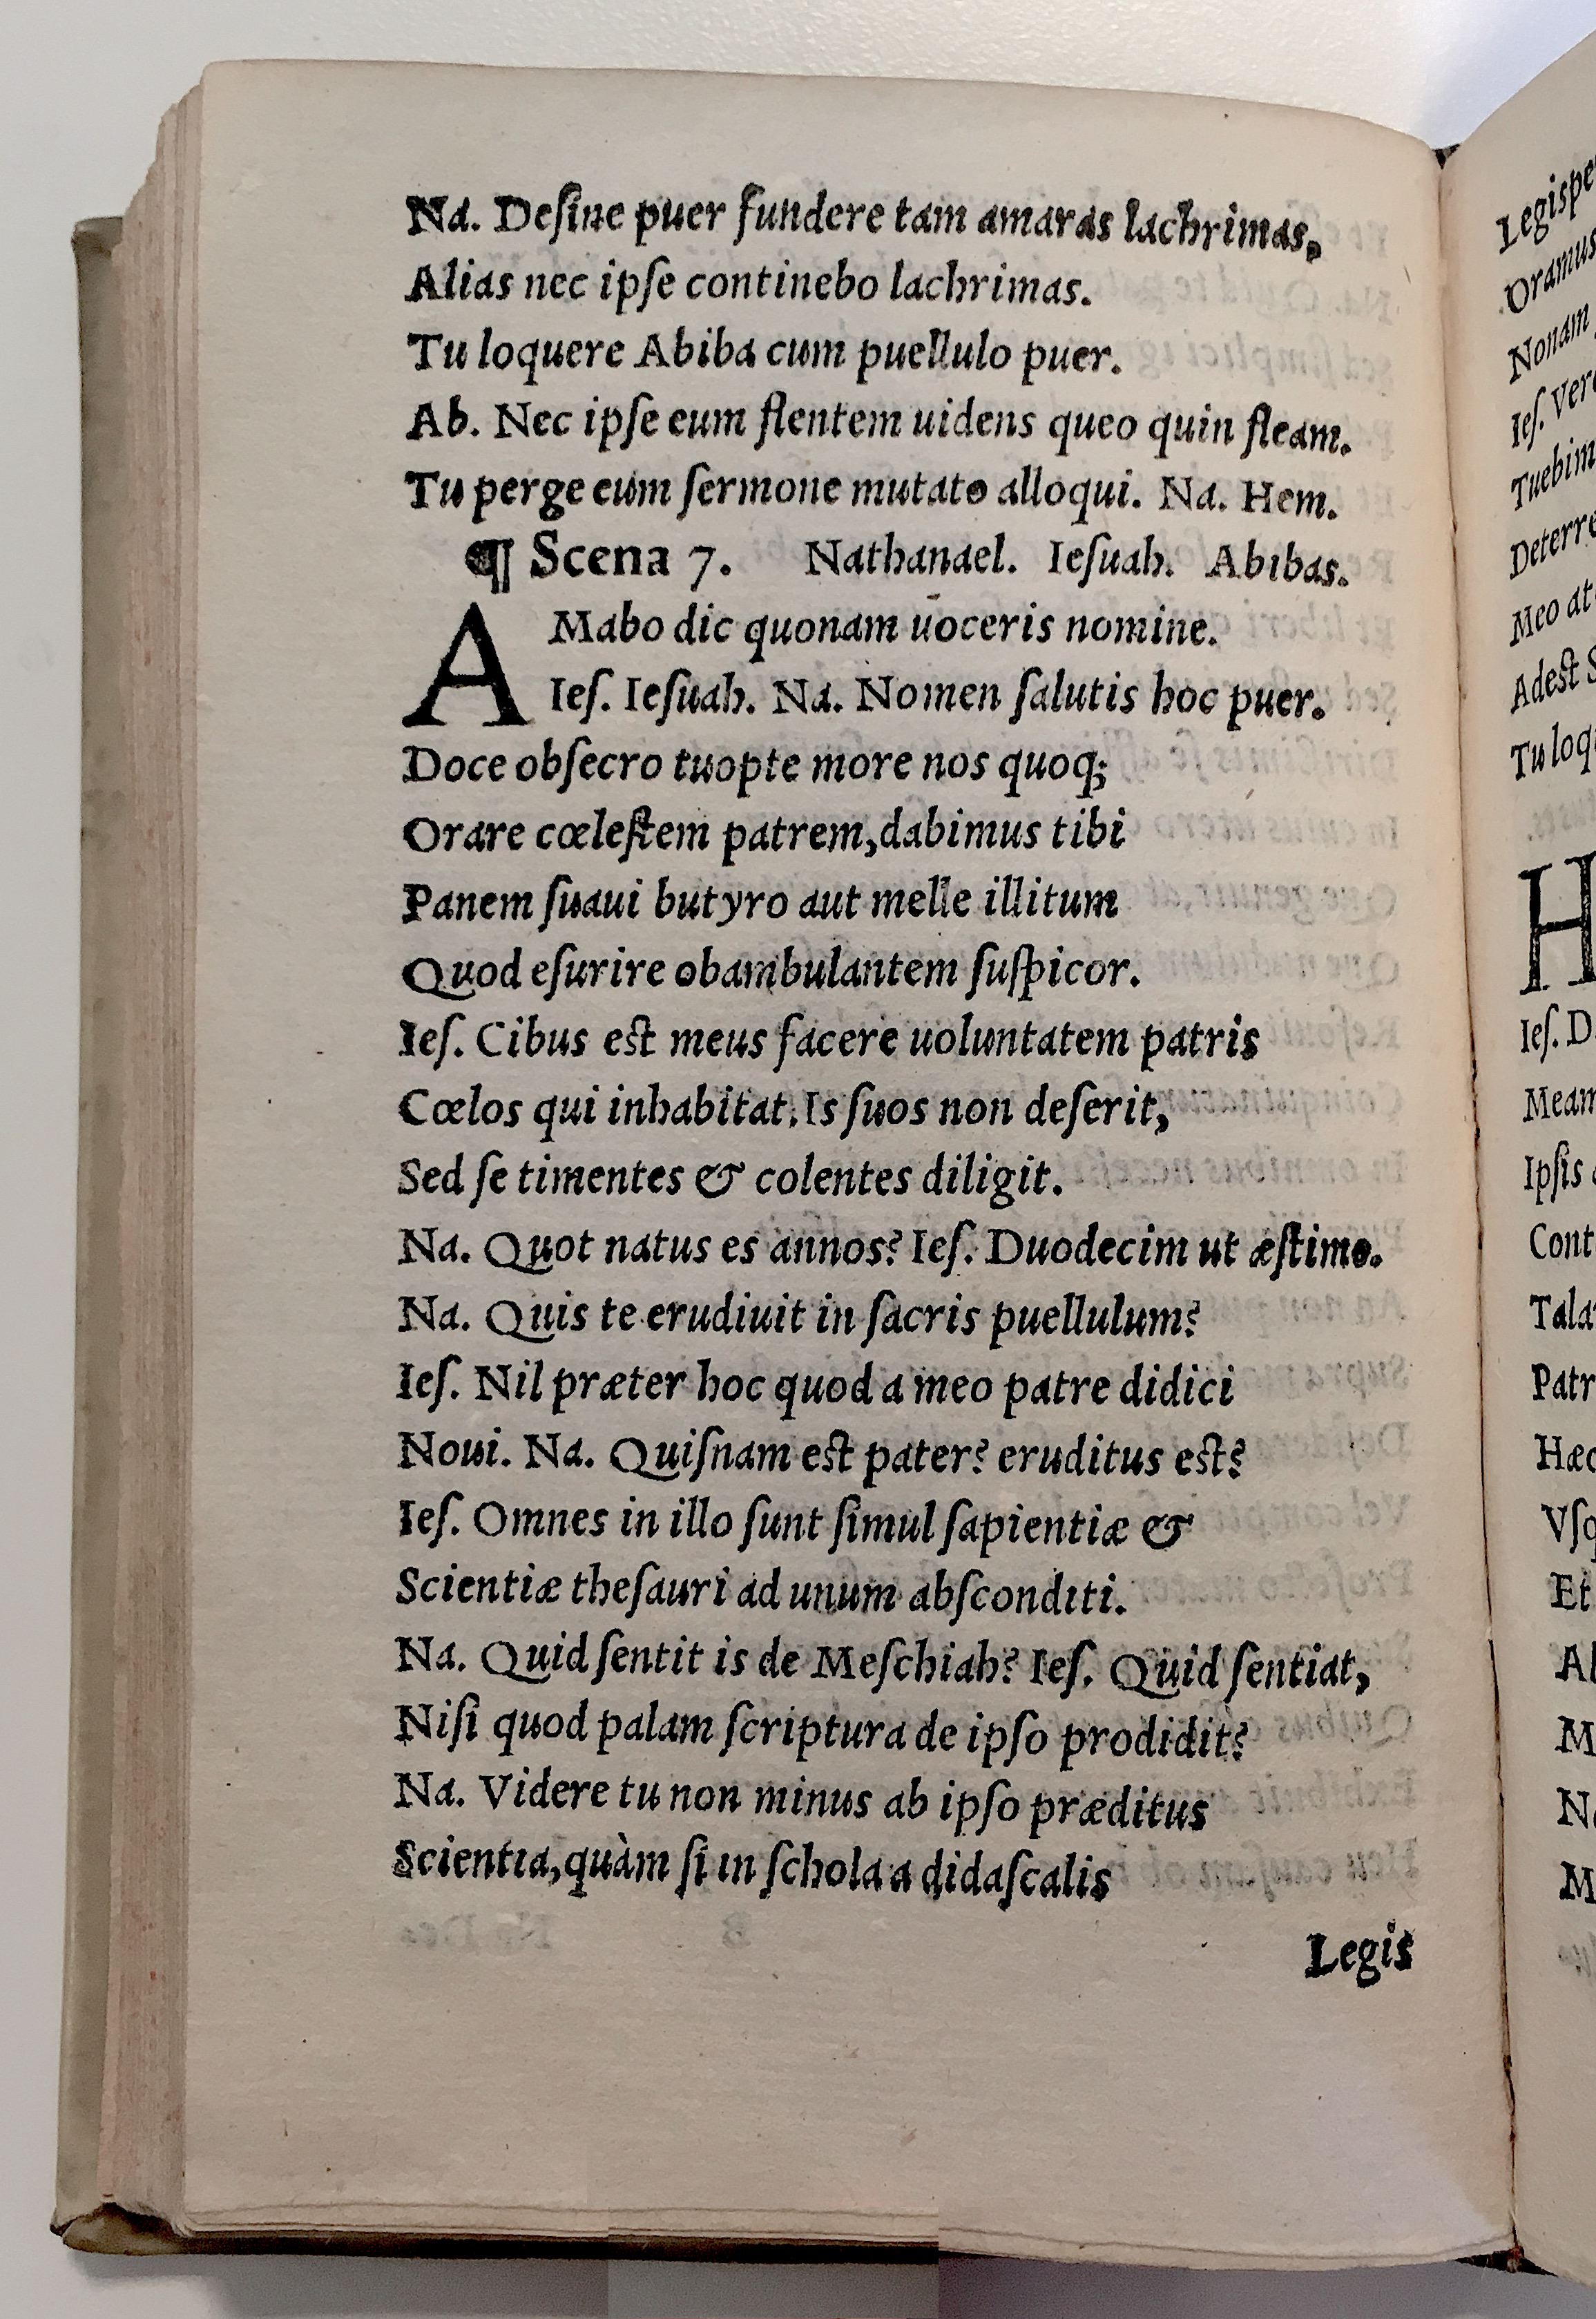 Na. Deſine puer fundere tam amaras lachrimas,
Alias nec ipſe continebo lachrimas.
Tu loquere Abiba cum puellulo puer.
Ab. Nec ipſe eum flentem uidens queo quin fleam.
Tu perge eum ſermone mutato alloqui. Na. Hem.
¶ Scena 7. Nathanael. Ieſuah. Abibas.
AMabo dic quonam uoceris nomine.
Ieſ. Ieſuah. Na. Nomen ſalutis hoc puer.
Doce obſecro tuopte more nos quoq;
Orare cœleſtem patrem, dabimus tibi
Panem ſuaui butyro aut melle illitum
Quod eſurire obambulantem ſuſpicor.
Ieſ. Cibus est meus facere uoluntatem patris
Cœlos qui inhabitat. Is ſuos non deſerit,
Sed ſe timentes & colentes diligit.
Na. Quot natus es annos? Ieſ. Duodecim ut æſtimo.
Na. Quis te erudiuit in ſacris puellulum?
Ieſ. Nil præter hoc quod a meo patre didici
Noui. Na. Quiſnam est pater? eruditus est?
Ieſ. Omnes in illo ſunt ſimul ſapientiæ &
Scientiæ theſauri ad unum abſconditi.
Na. Quid ſentit is de Meſchiah? Ieſ. Quid ſentiat,
Niſi quod palam ſcriptura de ipſo prodidit?
Na. Videre tu non minus ab ipſo præditus
Scientia, quàm ſi in ſchola a didaſcalis
Legis
Legispe
Oramus
Nonam
Ieſ. Ver
Tuebim
Deterre
Meo at
Adest S
Tu loq
H
Ieſ. D
Mean
Ipſis
Cont
Tala
Patr
Hæc
Vſq
Et
Al
M
N
M